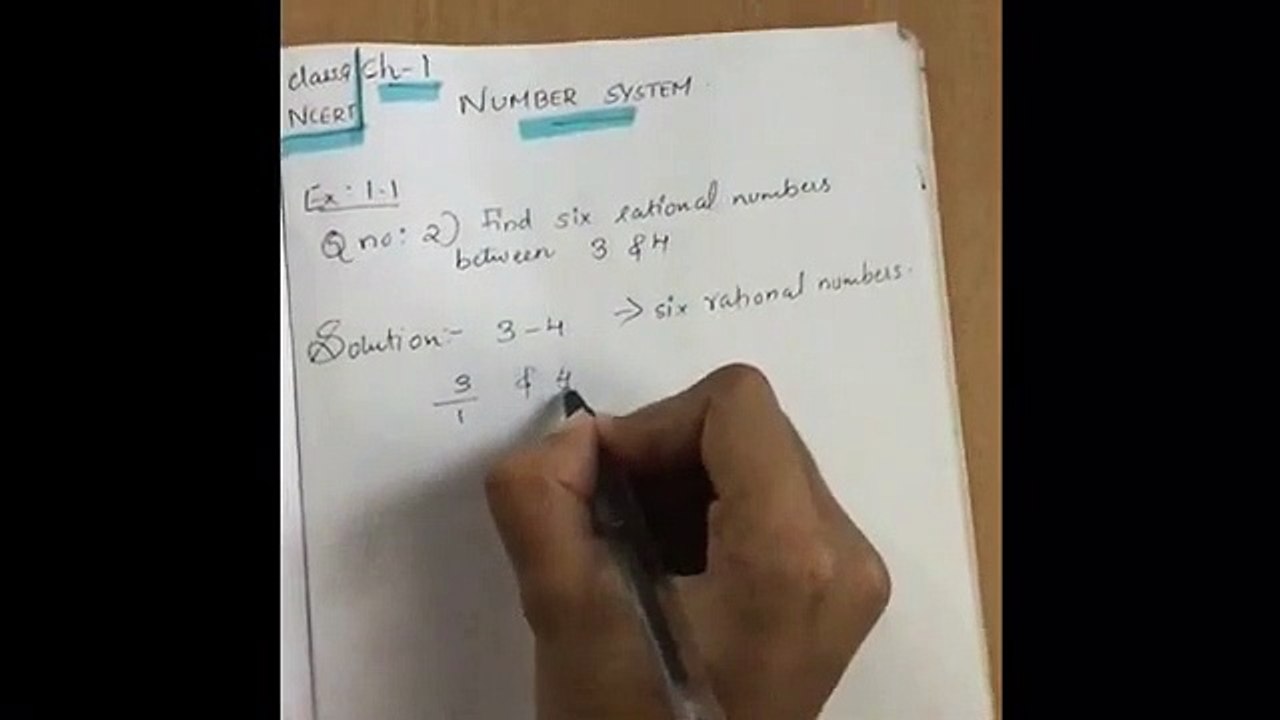 class 9 ch-1
NCERT
NUMBER SYSTEM
Ex: 1.1
Q no: 2) Find six rational numbers
between 3 & 4
Solution:- 3-4 → six rational numbers.
3 & 4
1